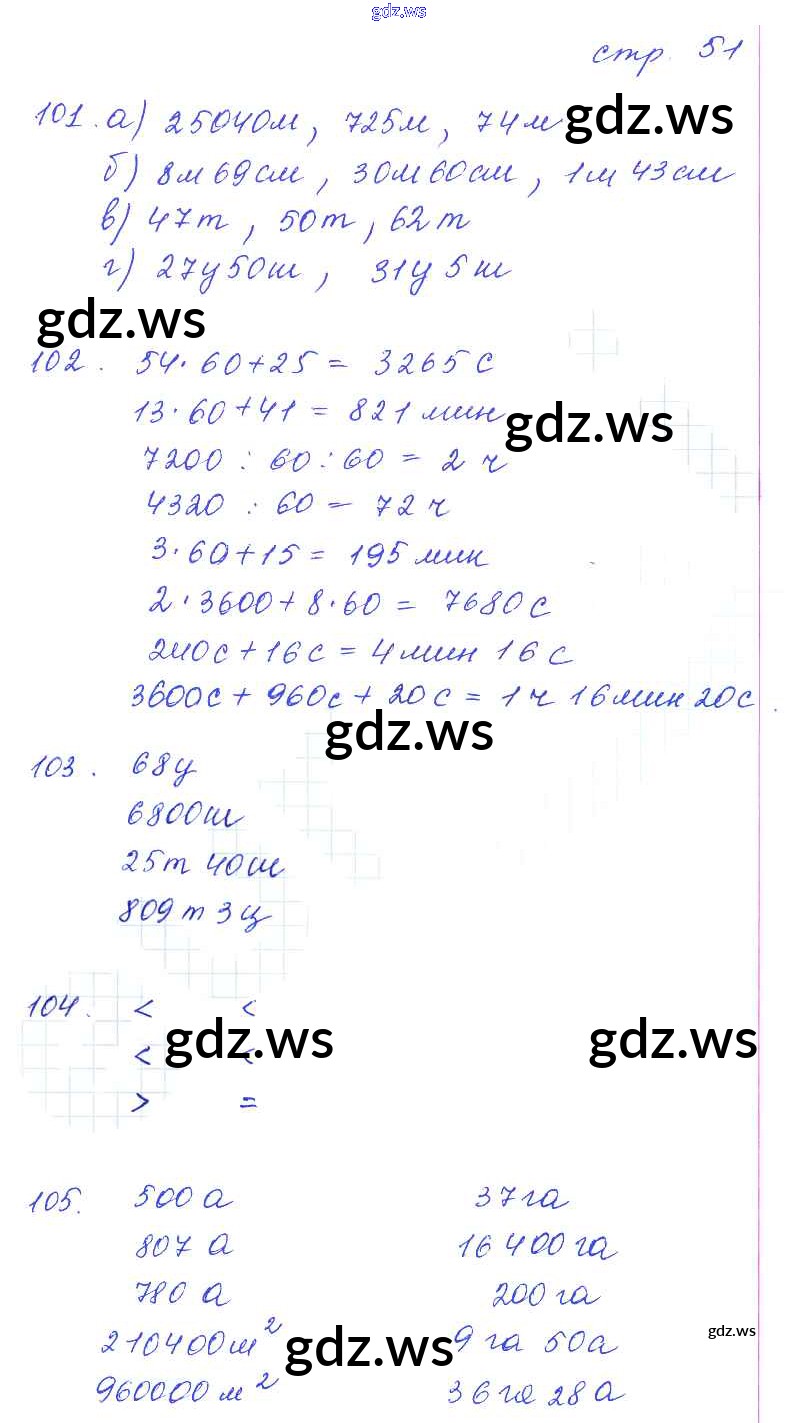 gdz.ws
стр. 51
101. а) 25040м, 725м, 74м gdz.ws
б) 8м 69см, 30м 60см, 1м 43см
в) 47т, 50т, 62т
г) 27ц 50ш, 31ц 5ш
gdz.ws
102. 54·60+25 = 3265 с
13·60+41 = 821 мин gdz.ws
7200 : 60 : 60 = 2 ч
4320 : 60 = 72 ч
3·60+15 = 195 мин
2·3600+8·60 = 7680с
240с + 16с = 4мин 16с
3600с + 960с + 20с = 1ч 16мин 20с.
gdz.ws
103. 68ц
6800ш
25т 40ш
809т 3ц
104. < <
gdz.ws gdz.ws
< <
> =
105. 500 а 37га
807 а 16 400 га
780 а 200 га
210400м² gdz.ws 9 га 50а gdz.ws
960000 м² 36га 28а